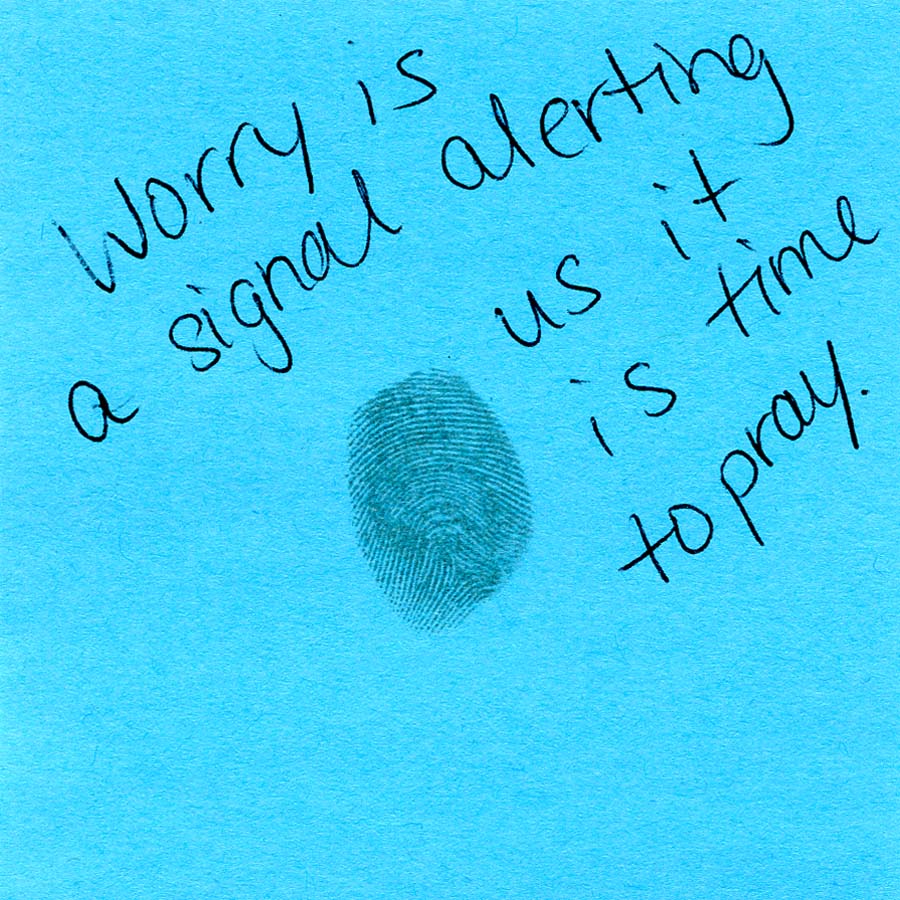 Worry is
a signal alerting
us it
is time
to pray.